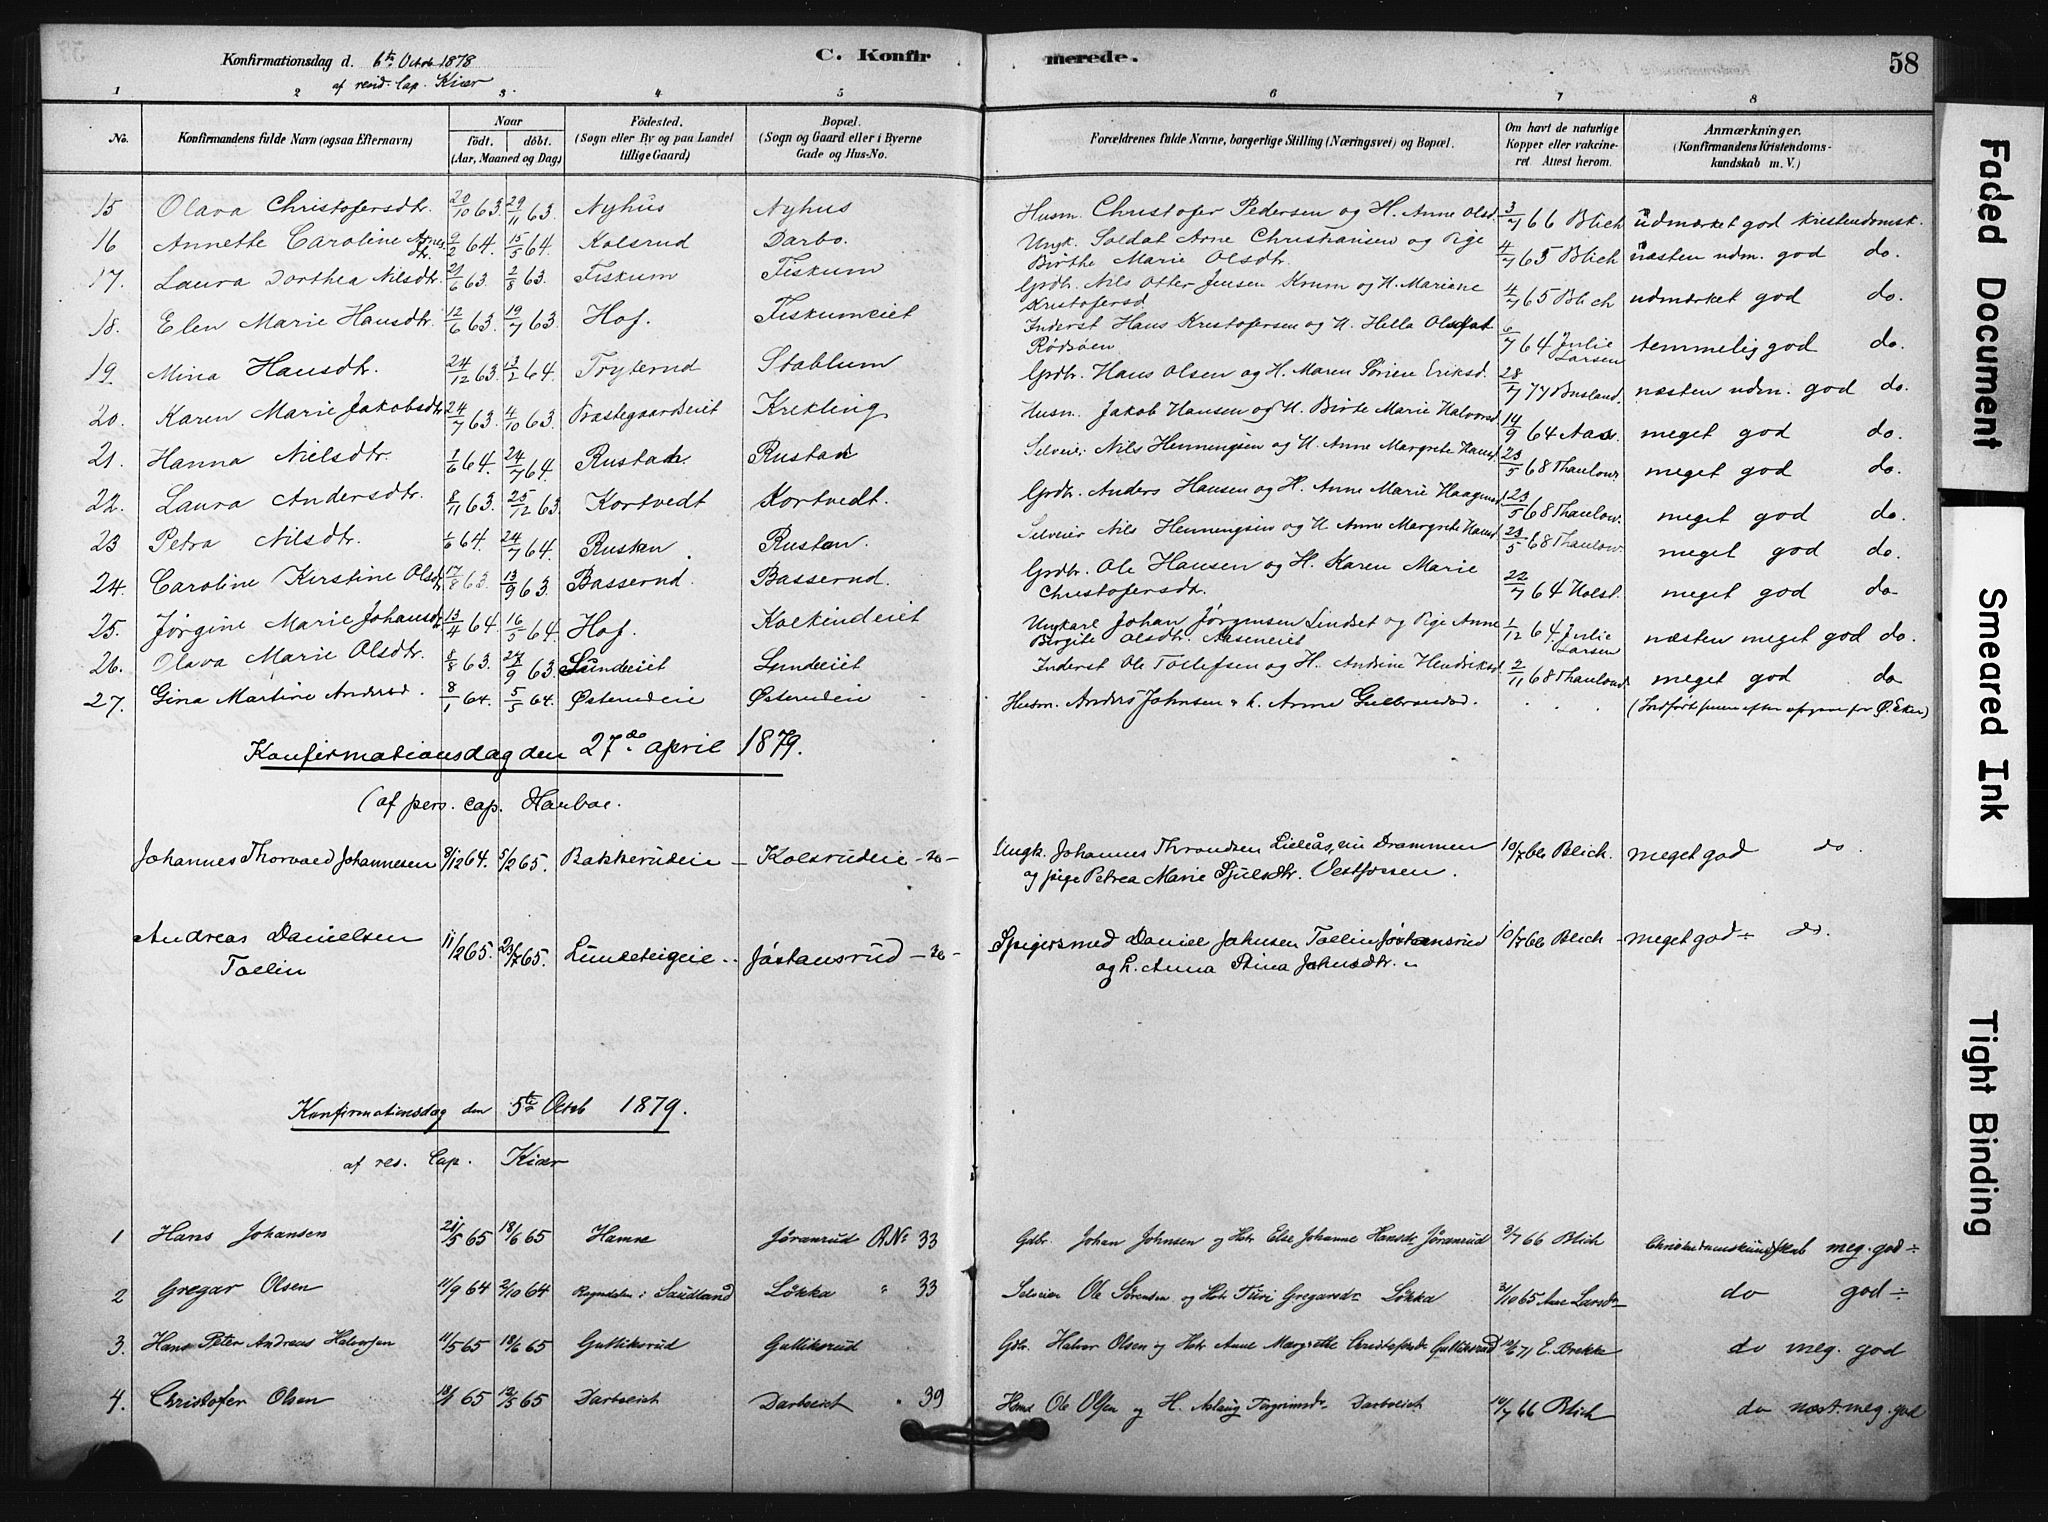 Konfirmationsdag d. 6te Octob 1878
af resid. Cap. Kiær
C. Konfirmerede.
58
1 2 3. 4 5 6 7 8
No. Konfirmandens fulde Navn (ogsaa Efternavn) Naar født. døbt. (Aar, Maaned og Dag) Födested. (Sogn eller By og paa Landet tillige Gaard) Bopæl. (Sogn og Gaard eller i Byerne Gade og Hus-No. Forældrenes fulde Navne, borgerlige Stilling (Næringsvei) og Bopæl. Om havt de naturlige Kopper eller vakcineret. Attest herom. Anmærkninger. (Konfirmandens Kristendomskundskab m. V.)
15 Olava Christofersdtr. 20/10 63. 29/11 63. Nyhus Nyhus Husm. Christofer Pedersen og H. Anne Olsd. 3/7 66 Blich udmærket god kristendomsk.
16 Annette Caroline Arnes dtr. 9/2 64. 15/5 64. Kolsrud Darbo. Ungk. Soldat Arne Christiansen og Pige Birthe Marie Olsdtr. 4/7 65 Blich næsten udm. god do.
17. Laura Dorthea Nilsdtr. 63. 2/8 63. Fiskum Fiskum Grdbr. Nils Otter Jensen Krum og H. Mariane Kristofersd 4/7 65 Blich udmærket god do.
18. Elen Marie Hansdtr. 12/6 63. 19/7 63. Hof. Fiskumeiet Inderst Hans Kristofersen og H. Helle Olsd Rødsøen 6/7 64 Julie Larsen temmelig god do.
19. Mina Hansdtr. 24/12 63. 13/2 64. Fryterud Stablum Grdbr. Hans Olsen og H. Maren Sørine Eriksd. 28/7 77 Busland. næsten udm. god do.
20. Karen Marie Jakobsdtr 24/7 63. 4/10 63. Præstegaardseiet Krekling Husm. Jakob Hansen og H. Birte Marie Halvorsd 14/9 64 Aas. meget god do.
21. Hanna Nielsdtr. 1/6 64. 24/7 64. Rustan. Rustan Selveier Nils Henningsen og H. Anne Margrete Hansd 23/5 68 Thaulow. meget god do.
22. Laura Andersdtr. 8/11 63. 25/12 63. Kortvedt Kortvedt. Grdbr. Anders Hansen og H. Anne Marie Haagensd. 23/5 68 Thaulow. meget god do.
23 Petra Nilsdtr. 1/6 64. 24/7 64. Rustan. Rustan. Selveier Nils Henningsen og H. Anne Margrete Hansd 23/5 68 Thaulow. meget god do.
24. Caroline Kirstine Olsdtr 17/8 63. 13/9 63. Basserud. Basserud. Grdbr. Ole Hansen og H. Karen Marie Christofersdtr. 22/7 64 Holst. meget god do
25. Jørgine Marie Johansdtr 13/4 64 16/5 64. Hof. Kolkindeiet Ungkarl Johan Jørgensen Lindset og Pige Anne Birgite Olsdtr. Aaseneiet 1/12 64. Julie Larsen næsten meget god do.
26. Olava Marie Olsdtr. 8/8 63. 24/9 63. Lundeiet Lundeiet Inderst Ole Tollefsen og H. Andrine Hendriksd. 2/11 68 Thaulow. meget god do
27. Gina Martine Andersd. 8/1 64. 5/5 64. Østerudeie Østerudeie Husm. Anders Johnsen & h. Anne Gulbrandsd. . . . (Indført senere efter opgave fra Ø. Eker)
Konfirmationsdag den 27de april 1879.
(af pers. cap. Harboe.
Johannes Thorvald Johannesen 8/12 64. 5/2 65. Bakkerudeie – Kolsrudeie – 20 – Ungk. Johannes Throndsen Lieleås, eie Drammen og pige Petrea Marie Sjulsdtr. Vestfossen. 10/7 66 Blich. meget god do.
Andreas Danielsen Tollin 11/2 65. 23/7 65. Lundeteigeie .. Jøstansrud – 30 – Spigersmed Daniel Johnsen Tollin Jøstansrud og h. Anna Stina Johnsdtr. 10/7 66 Blich – meget god – do.
Konfirmationsdag den 5te Octob 1879.
af res. Cap. Kiær
1 Hans Johansen 21/5 65 18/6 65 Hamre Jøranrud R.No 33 Gdbr. Johan Johnsen og Hstr Else Johanne Hansdr Jøranrud 3/7 66 Blich Christendomskundskab meg. god ÷
2 Gregar Olsen 11/9 64 2/10 64 Rogndalen i Saudland Løkka " 33 Selveier Ole Sørensen og Hstr Turi Gregarsdr Løkka 31/10 65 Ane Larsdr do god ÷
3. Hans Peter Andreas Halvorsen 11/5 65 18/6 65 Gulliksrud Gulliksrud Gdbr. Halvor Olsen og Hstr Anne Margrethe Christofersdr Gulliksrud 12/6 71 E. Brekke do meg. god
4. Christofer Olsen 18/1 65 12/3 65 Darboeiet Darboeiet " 39 Husmd Ole Olsen og H. Aslaug Torgrimsdr Darboeiet 14/7 66 Blich do næst. meg. god
Faded Document
Smeared Ink
Tight Binding